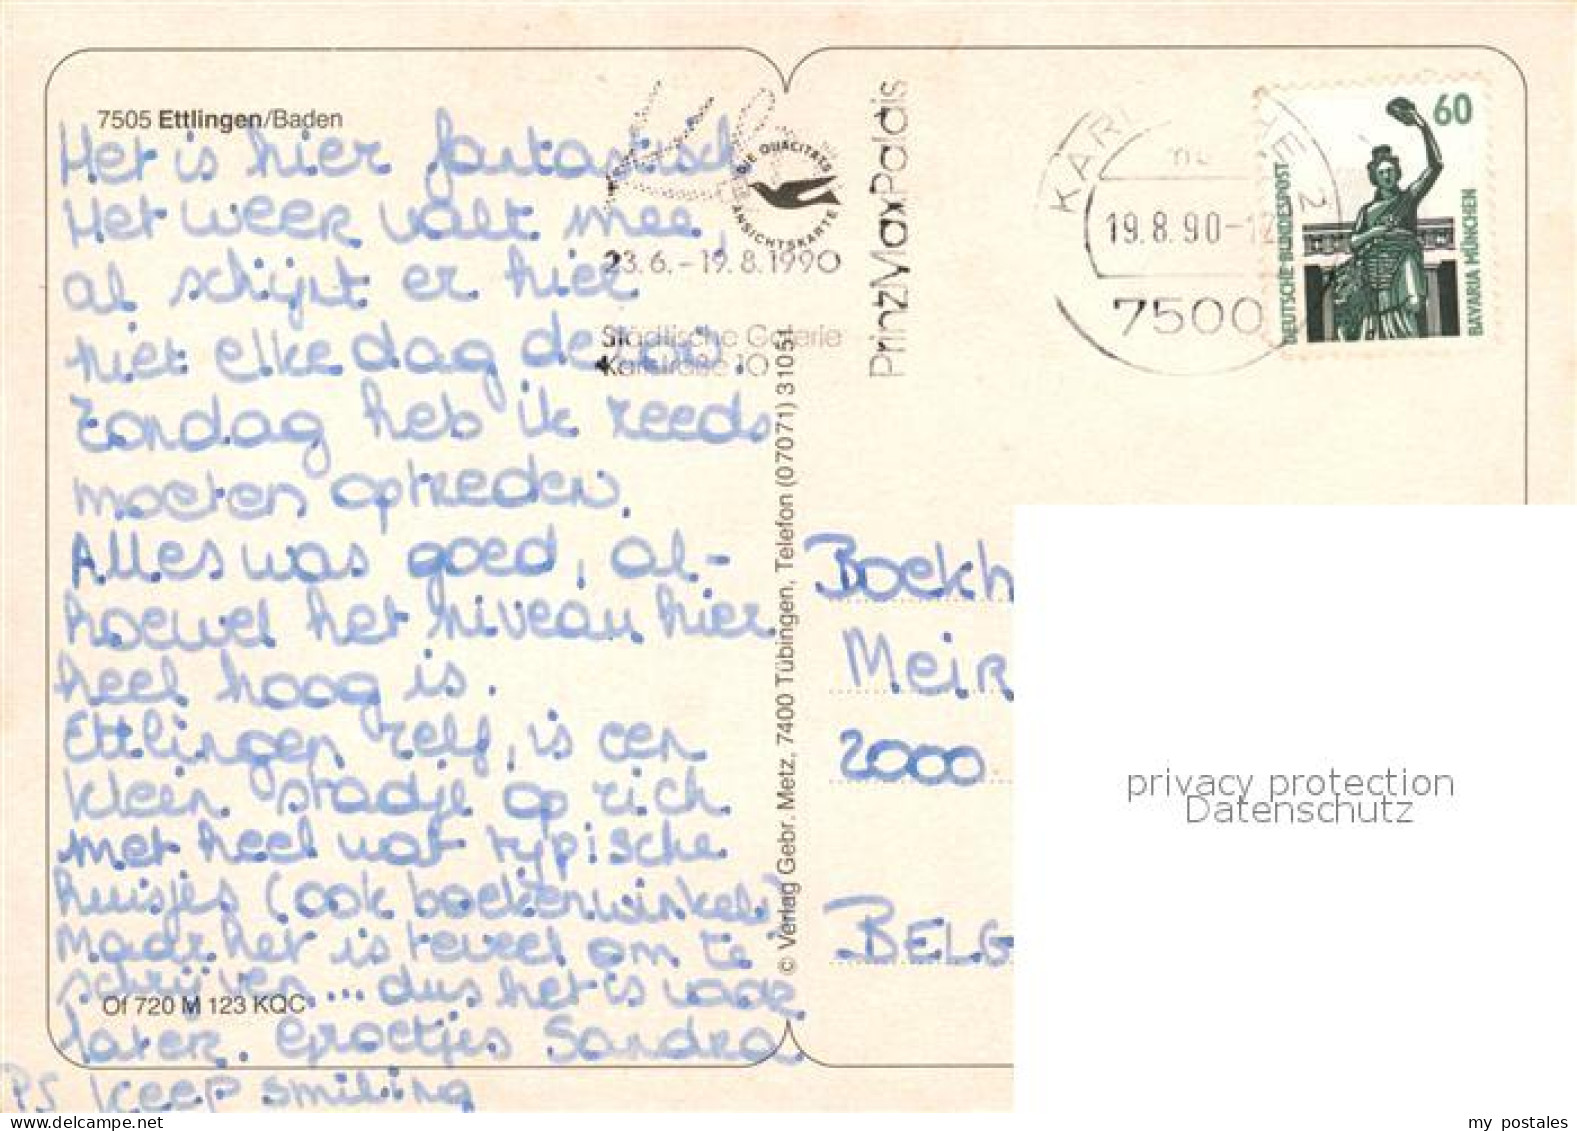 7505 Ettlingen/Baden
Het is hier fantastisch
Het weer valt mee,
al schijnt er hier
niet elke dag de zon.
Zondag heb ik reeds
moeten optreden.
Alles was goed, al-
hoewel het niveau hier
heel hoog is.
Ettlingen zelf, is een
klein stadje op zich
met heel wat typische
huisjes (ook boekenwinkels)
Maar het is teveel om te
schrijven... dus het is voor
later. Groetjes Sandra
PS keep smiling
Of 720 M 123 KQC
DIE QUALITÄTS
ANSICHTSKARTE
23.6.-19.8.1990
Städtische Galerie
Karlstraße 10
PrinzMaxPalais
© Verlag Gebr. Metz, 7400 Tübingen, Telefon (07071) 31051
19.8.90-12
7500
60
DEUTSCHE BUNDESPOST
BAVARIA MÜNCHEN
Boekh
Meir
2000
BELG
privacy protection
Datenschutz
www.delcampe.net
my postales